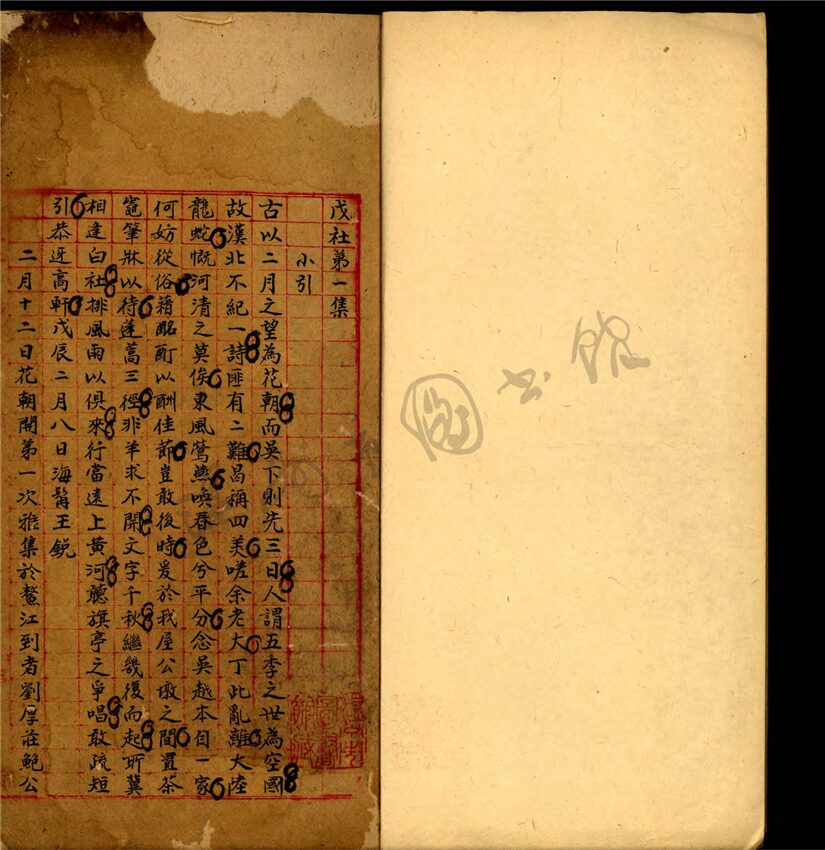 戊社第一集
小引
古以二月之望為花朝而吳下則先三日人謂五季之世為空國
故漢北不紀一詩匪有二難曷稱四美嗟余老大丁此亂離大陸
龍蛇慨河清之莫俟東風鶯燕喚春色兮平分念吳越本自一家
何妨從俗藉酩酊以酬佳節豈敢後時爰於我屋公墩之間置茶
竈筆牀以待蓬蒿三徑非羊求不開文字千秋繼幾復而起所冀
相逢白社排風雨以俱來行當遠上黃河聽旗亭之爭唱敢疏短
引恭迓高軒戊辰二月八日海髯王銳
二月十二日花朝開第一次雅集於鰲江到者劉厚莊鮑公